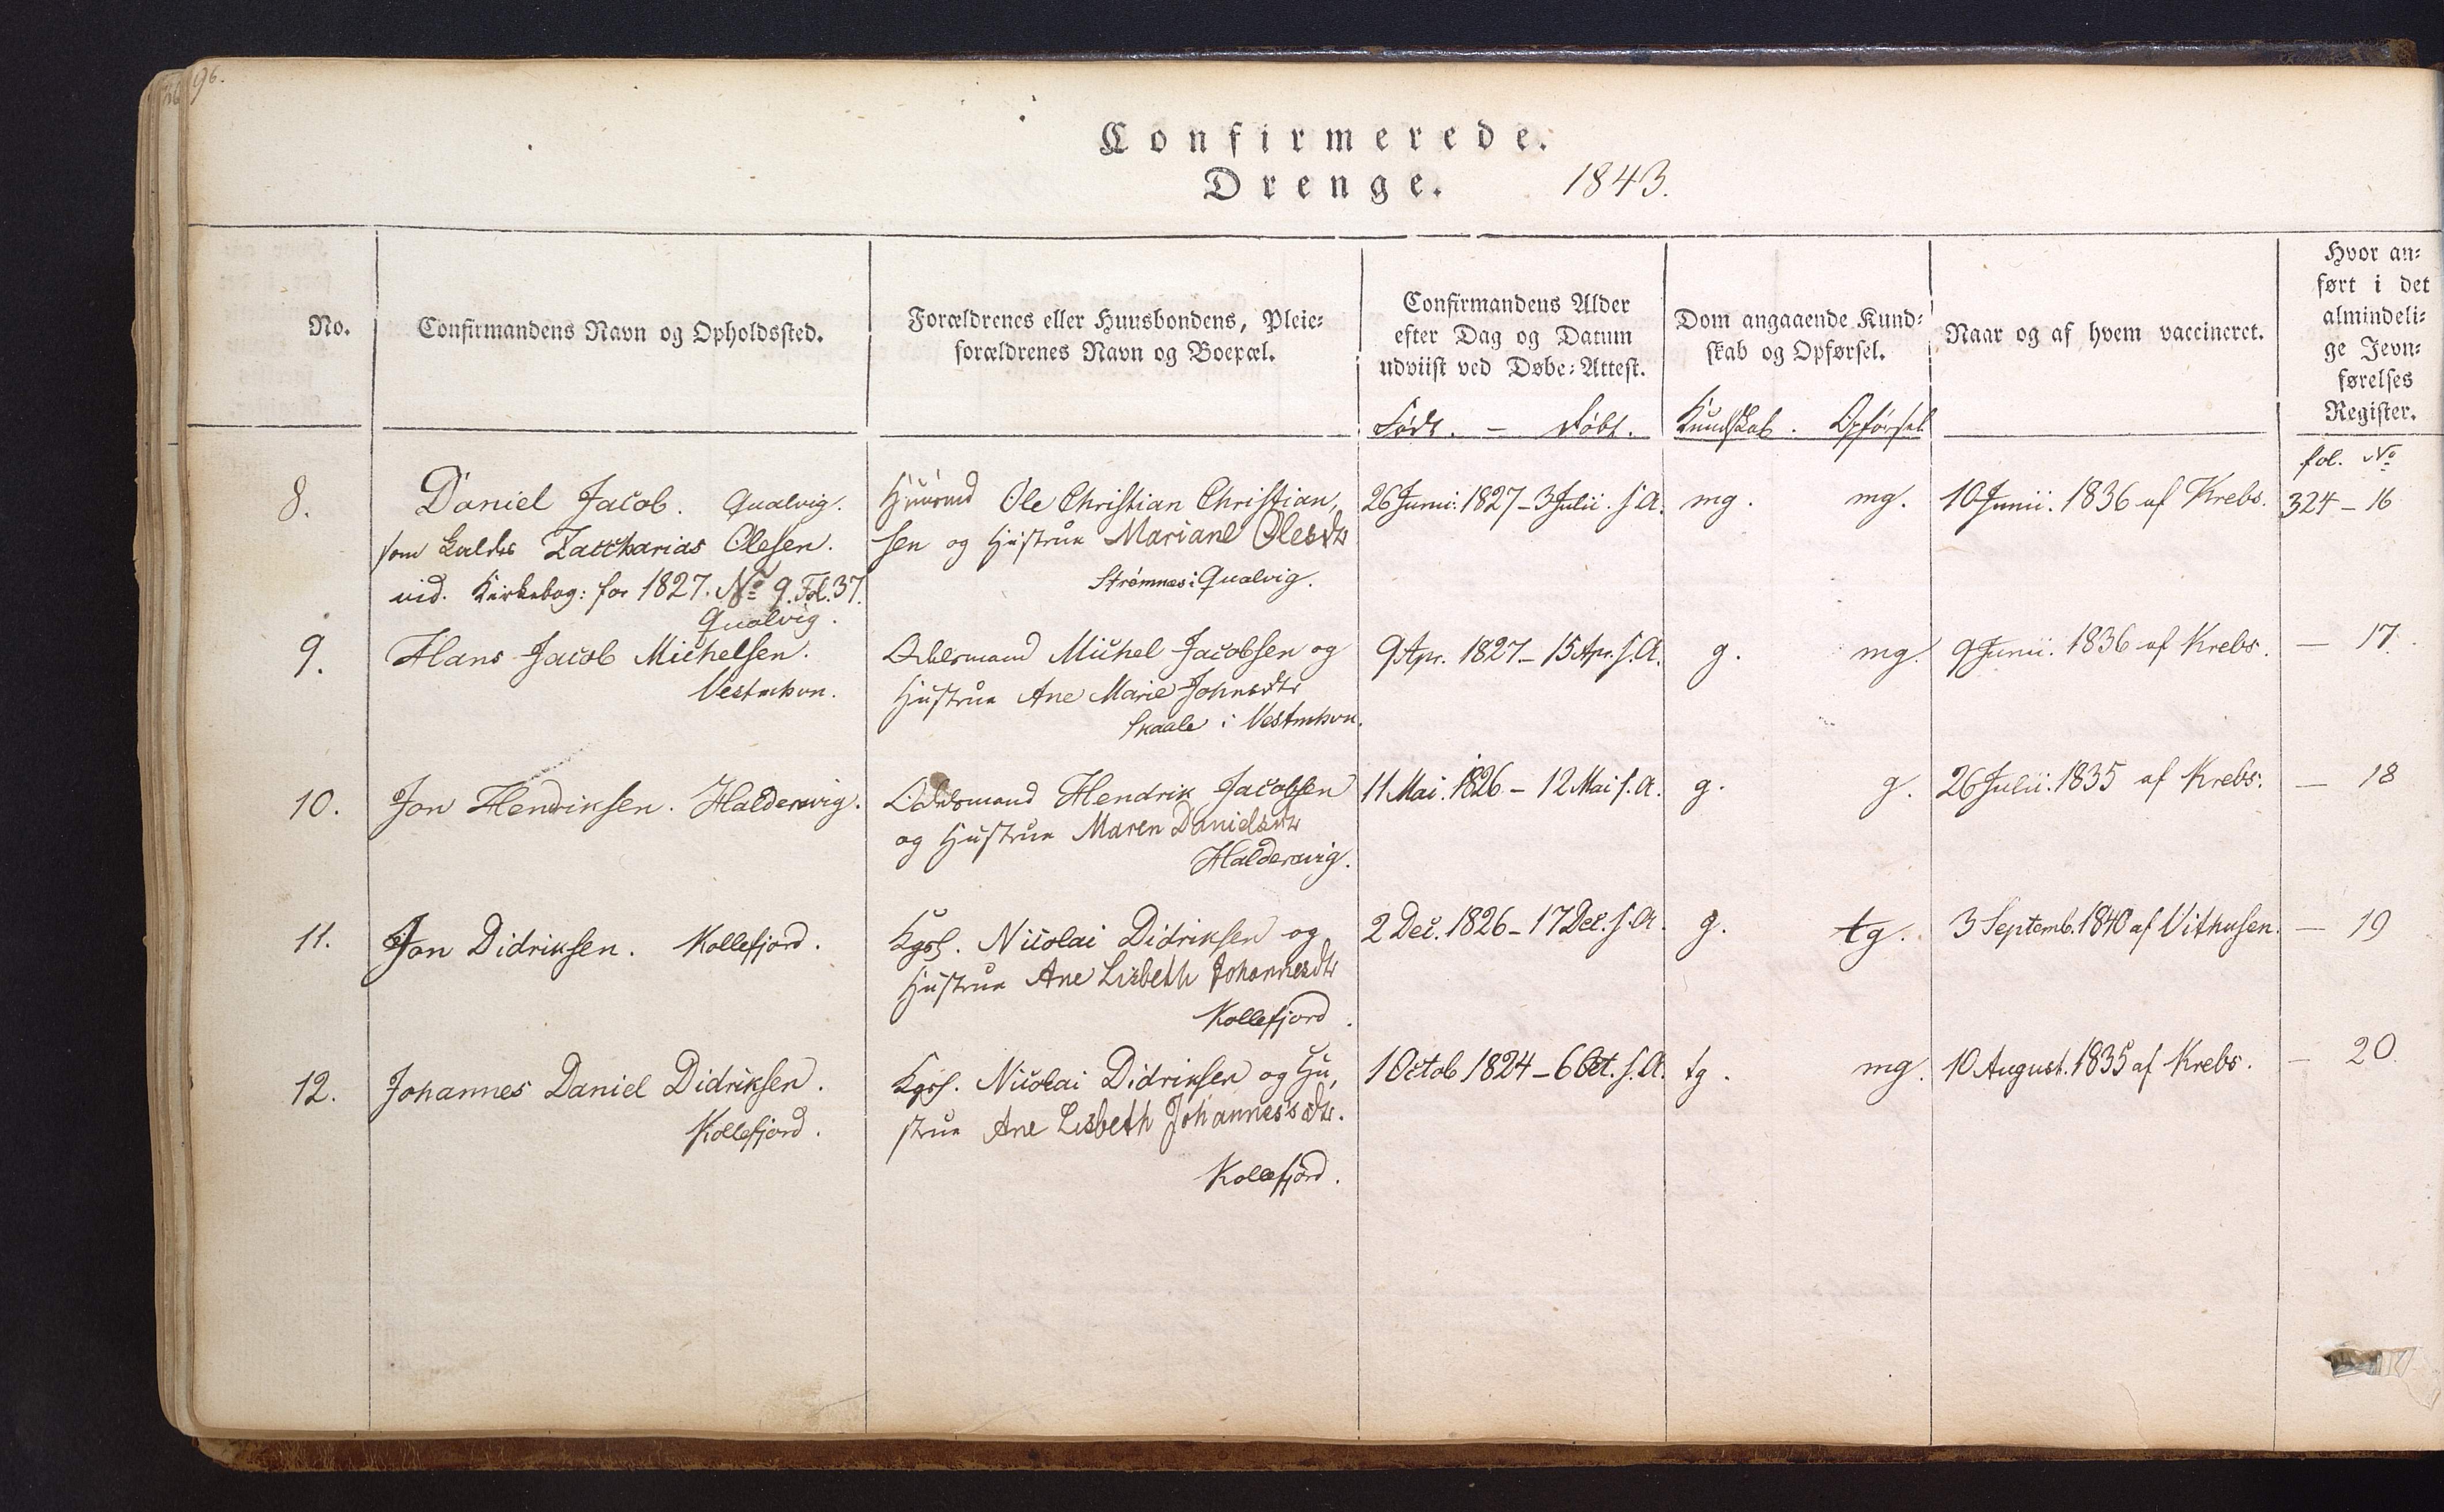 96.
Confirmerede.
Drenge. 1843.
No.
Confirmandens Navn og Opholdssted.
Forældrenes eller Huusbondens, Pleie-
forældrenes Navn og Boepæl.
Confirmandens Alder
efter Dag og Datum
udviist ved Døbe-Attest.
Født. – Døbt.
Dom angaaende Kund-
skab og Opførsel.
Kundskab. Opförsel
Naar og af hvem vaccineret.
Hvor an-
ført i det
almindeli-
ge Jevn-
førelses
Register.
fol. No
8. Daniel Jacob. Qualvig.
som kaldes Zaccharias Olesen.
vid. Kirkebog: for 1827. No 9. Fol. 37.
Qualvig.
Huusmd Ole Christian Christian,
sen og Hustrue Mariane Olesdtr
Strömnæs i Qualvig.
26 Junii. 1827 – 3 Julii. s. A. mg. mg. 10 Junii. 1836 af Krebs. 324 – 16
9. Hans Jacob Michelsen.
Vestmhvn.
Odelsmand Michel Jacobsen og
Hustrue Ane Marie Johnsdtr
Skaale i Vestmhvn.
9 Apr. 1827 – 15 Apr. s. A. g. mg. 9 Junii. 1836 af Krebs. — 17.
10. Jon Hendriksen. Haldersvig.
Odelsmand Hendrik Jacobsen
og Hustrue Maren Danielsdtr
Haldersvig.
11 Mai. 1826 – 12 Mai s. A. g. g. 26 Julii. 1835 af Krebs. — 18
11. Jon Didriksen. Kollefjord.
Kgsf. Nicolai Didriksen og
Hustrue Ane Lisbeth Johannesdtr
Kollefjord.
2 Dec. 1826 – 17 Dec. s. A. g. tg. 3 Septemb. 1840 af Vithusen. — 19
12. Johannes Daniel Didriksen.
Kollefjord.
Kgsf. Nicolai Didriksen og Hu,
strue Ane Lisbeth Johannes's dtr.
Kollefjord.
1 Octob 1824 – 6 Oct. s. A. tg. mg. 10 August. 1835 af Krebs. — 20.